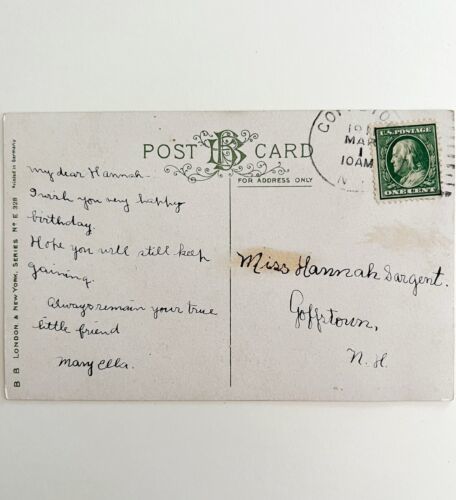 POST CARD
FOR ADDRESS ONLY
MAR
1
10AM
N
U.S. POSTAGE
ONE CENT
B B LONDON & NEW YORK. SERIES No E 328 Printed in Germany
My dear Hannah.
I wish you very happy
birthday.
Hope you will still keep
gaining.
Always remain your true
little friend
Mary Ella.
Miss Hannah Sargent.
Goffstown,
N. H.